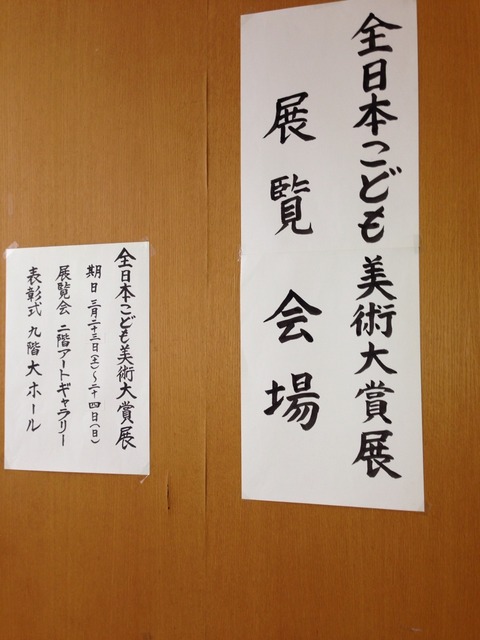 全日本こども美術大賞展
展覧会場
全日本こども美術大賞展
期日 三月二十三日(土)～二十四日(日)
展覧会 二階アートギャラリー
表彰式 九階大ホール